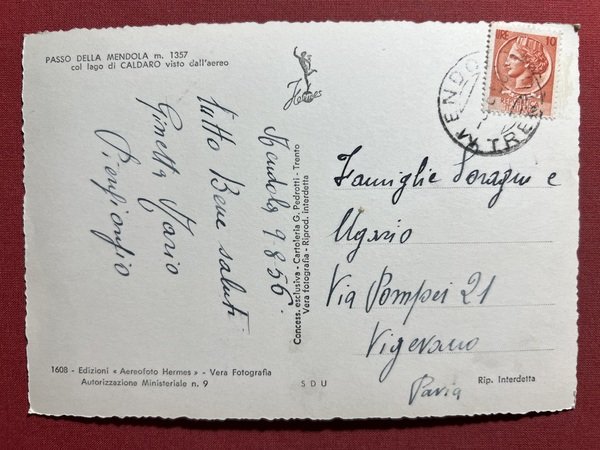 PASSO DELLA MENDOLA m. 1357
col lago di CALDARO visto dall'aereo
Hermes
Mendola 9.8.56
tutto Bene saluti
Ginetta Mario
Piergiorgio
Concess. esclusiva - Cartoleria G. Pedrotti - Trento
Vera fotografia - Riprod. interdetta
1608 - Edizioni « Aereofoto Hermes » - Vera Fotografia
Autorizzazione Ministeriale n. 9
S D U
LIRE 10
MENDO
TRE
Famiglie e
Ugario
Via Pompei 21
Vigevano
Pavia
Rip. Interdetta